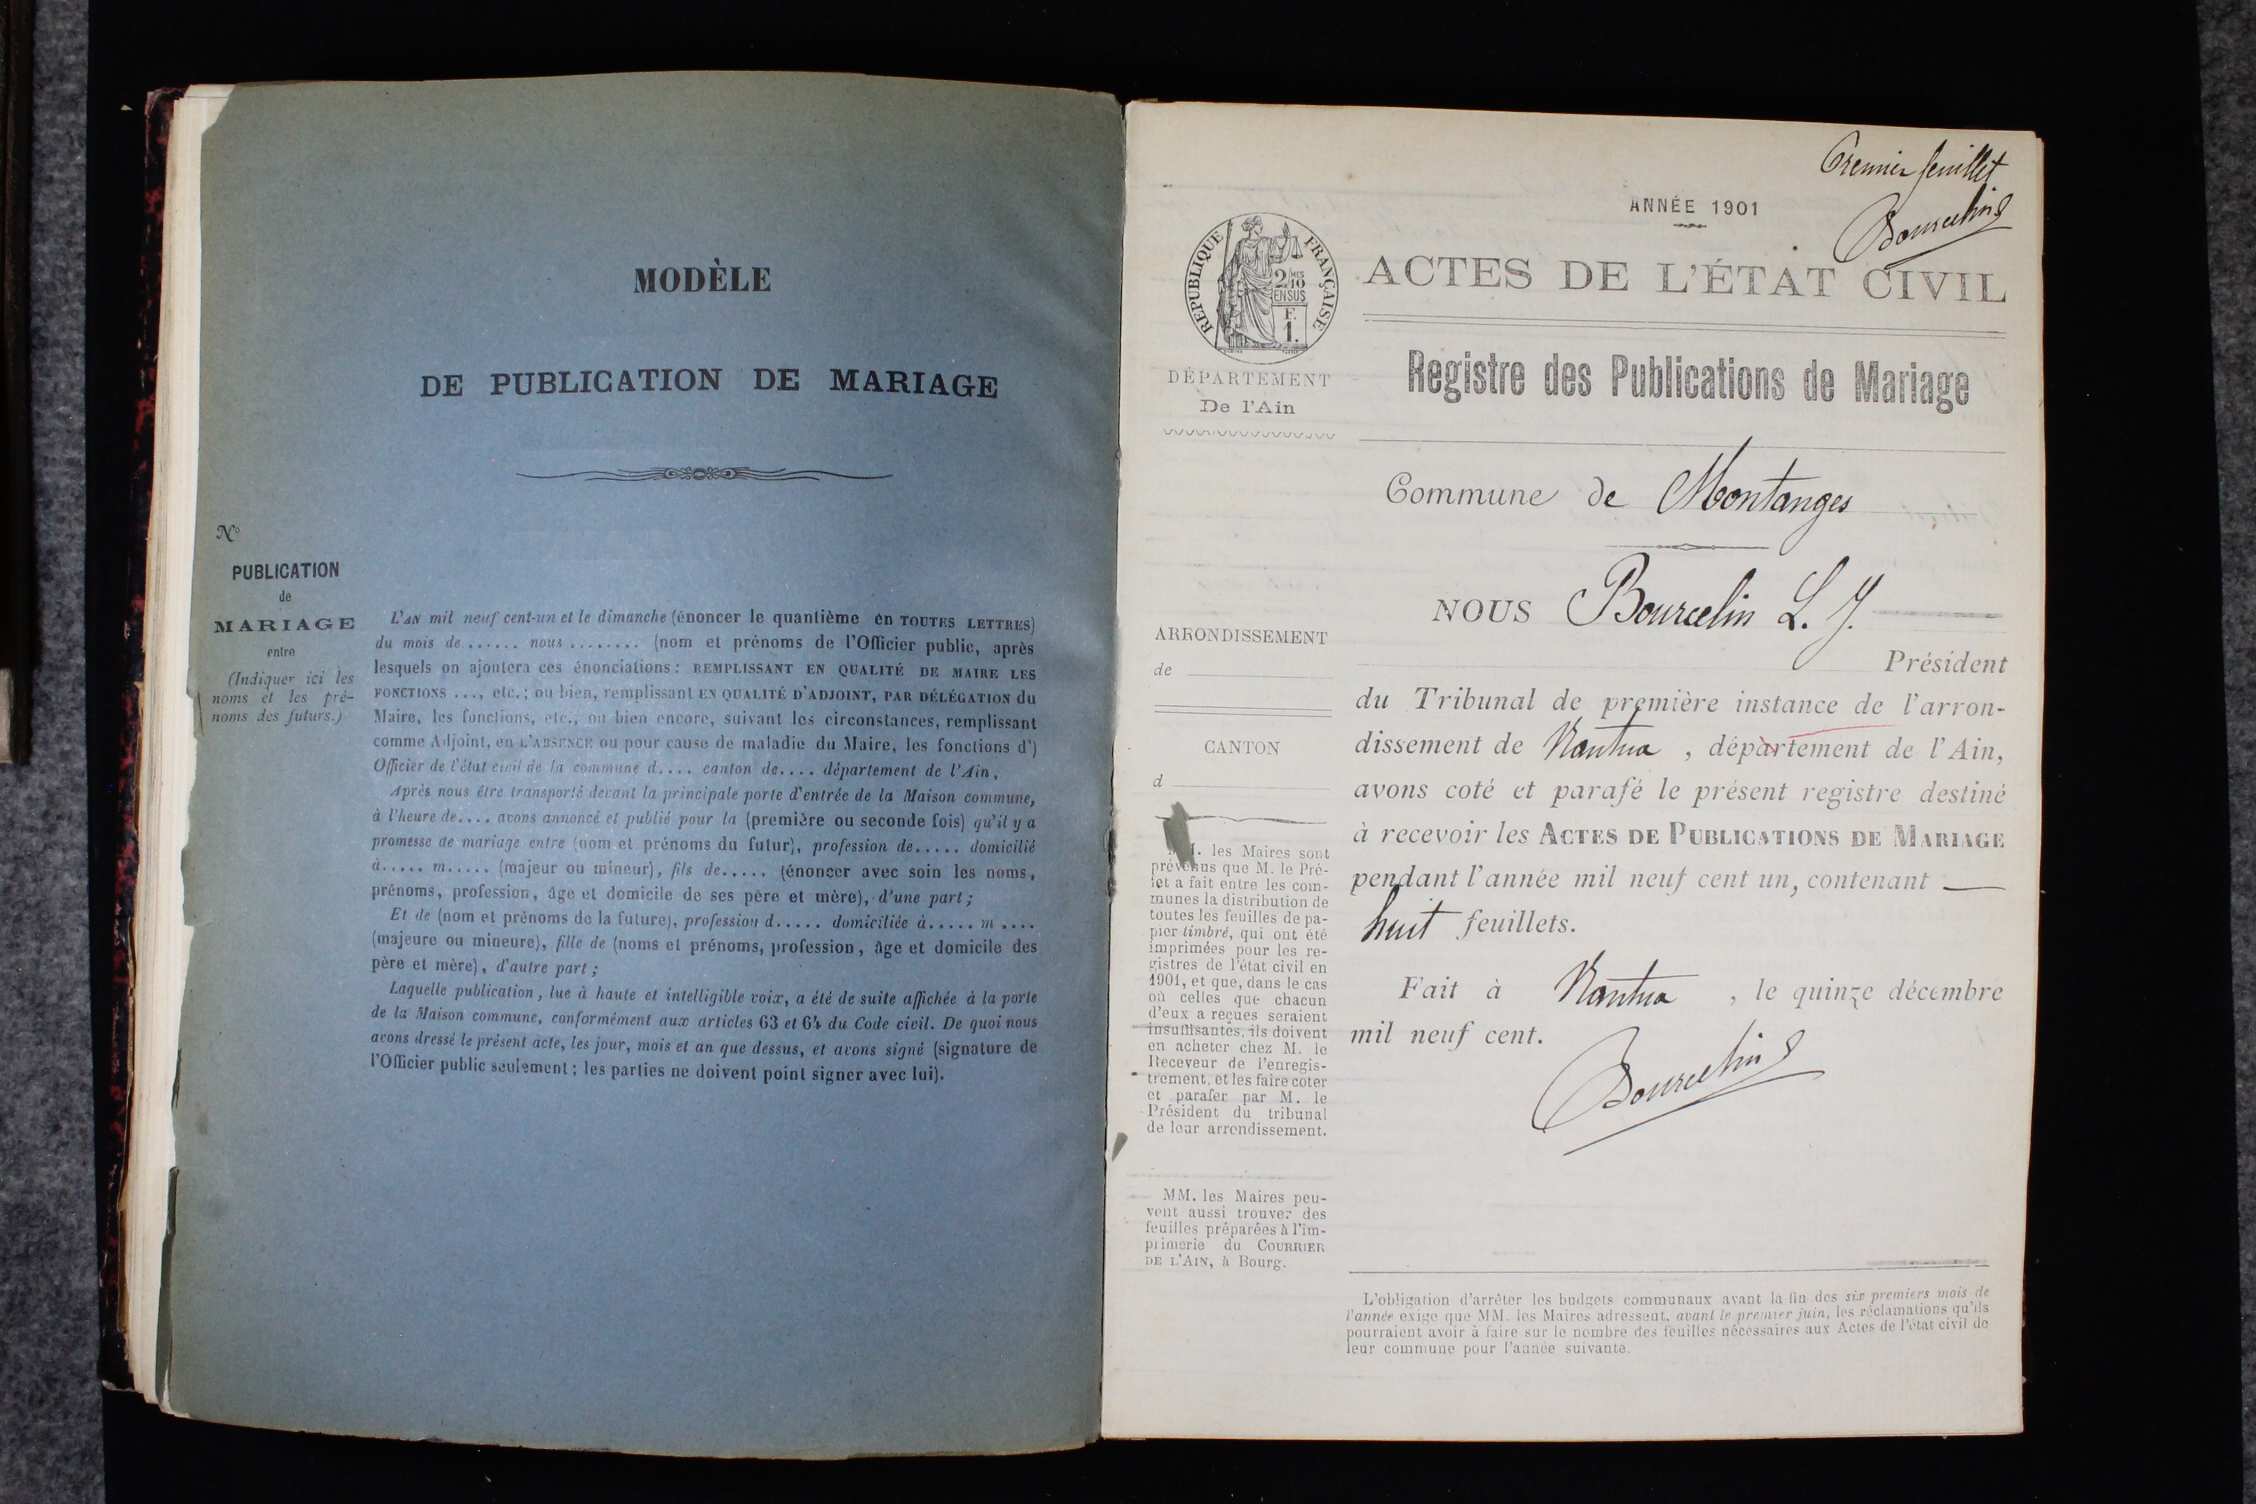 MODÈLE
DE PUBLICATION DE MARIAGE
N°
PUBLICATION
de
MARIAGE
entre
(Indiquer ici les
noms et les pré-
noms des futurs.)
L'AN mil neuf cent-un et le dimanche (énoncer le quantième en TOUTES LETTRES)
du mois de ...... nous ........ (nom et prénoms de l'Officier public, après
lesquels on ajoutera ces énonciations : REMPLISSANT EN QUALITÉ DE MAIRE LES
FONCTIONS ..., etc.; ou bien, remplissant EN QUALITÉ D'ADJOINT, PAR DÉLÉGATION du
Maire, les fonctions, etc., ou bien encore, suivant les circonstances, remplissant
comme Adjoint, en L'ABSENCE ou pour cause de maladie du Maire, les fonctions d')
Officier de l'état civil de la commune d.... canton de.... département de l'Ain,
Après nous être transporté devant la principale porte d'entrée de la Maison commune,
à l'heure de.... avons annoncé et publié pour la (première ou seconde fois) qu'il y a
promesse de mariage entre (nom et prénoms du futur), profession de..... domicilié
à..... m..... (majeur ou mineur), fils de..... (énoncer avec soin les noms,
prénoms, profession, âge et domicile de ses père et mère), d'une part ;
Et de (nom et prénoms de la future), profession d..... domiciliée à..... m ....
(majeure ou mineure), fille de (noms et prénoms, profession, âge et domicile des
père et mère), d'autre part ;
Laquelle publication, lue à haute et intelligible voix, a été de suite affichée à la porte
de la Maison commune, conformément aux articles 63 et 64 du Code civil. De quoi nous
avons dressé le présent acte, les jour, mois et an que dessus, et avons signé (signature de
l'Officier public seulement ; les parties ne doivent point signer avec lui).
Premier feuillet
Bourcelin
ANNÉE 1901
RÉPUBLIQUE FRANÇAISE
2/10
EN SUS
F.
1.
ACTES DE L'ÉTAT CIVIL
DÉPARTEMENT
De l'Ain
Registre des Publications de Mariage
Commune de Montanges
NOUS Bourcelin L. J.
Président
du Tribunal de première instance de l'arron-
dissement de Nantua, département de l'Ain,
avons coté et parafé le présent registre destiné
à recevoir les ACTES DE PUBLICATIONS DE MARIAGE
pendant l'année mil neuf cent un, contenant
huit feuillets.
Fait à Nantua, le quinze décembre
mil neuf cent.
Bourcelin
ARRONDISSEMENT
de
CANTON
d
les Maires sont
prévenus que M. le Pré-
fet a fait entre les com-
munes la distribution de
toutes les feuilles de pa-
pier timbré, qui ont été
imprimées pour les re-
gistres de l'état civil en
1901, et que, dans le cas
où celles que chacun
d'eux a reçues seraient
insuffisantes, ils doivent
en acheter chez M. le
Receveur de l'enregis-
trement, et les faire coter
et parafer par M. le
Président du tribunal
de leur arrondissement.
MM. les Maires peu-
vent aussi trouver des
feuilles préparées à l'im-
primerie du COURRIER
DE L'AIN, à Bourg.
L'obligation d'arrêter les budgets communaux avant la fin des six premiers mois de
l'année exige que MM. les Maires adressent, avant le premier juin, les réclamations qu'ils
pourraient avoir à faire sur le nombre des feuilles nécessaires aux Actes de l'état civil de
leur commune pour l'année suivante.